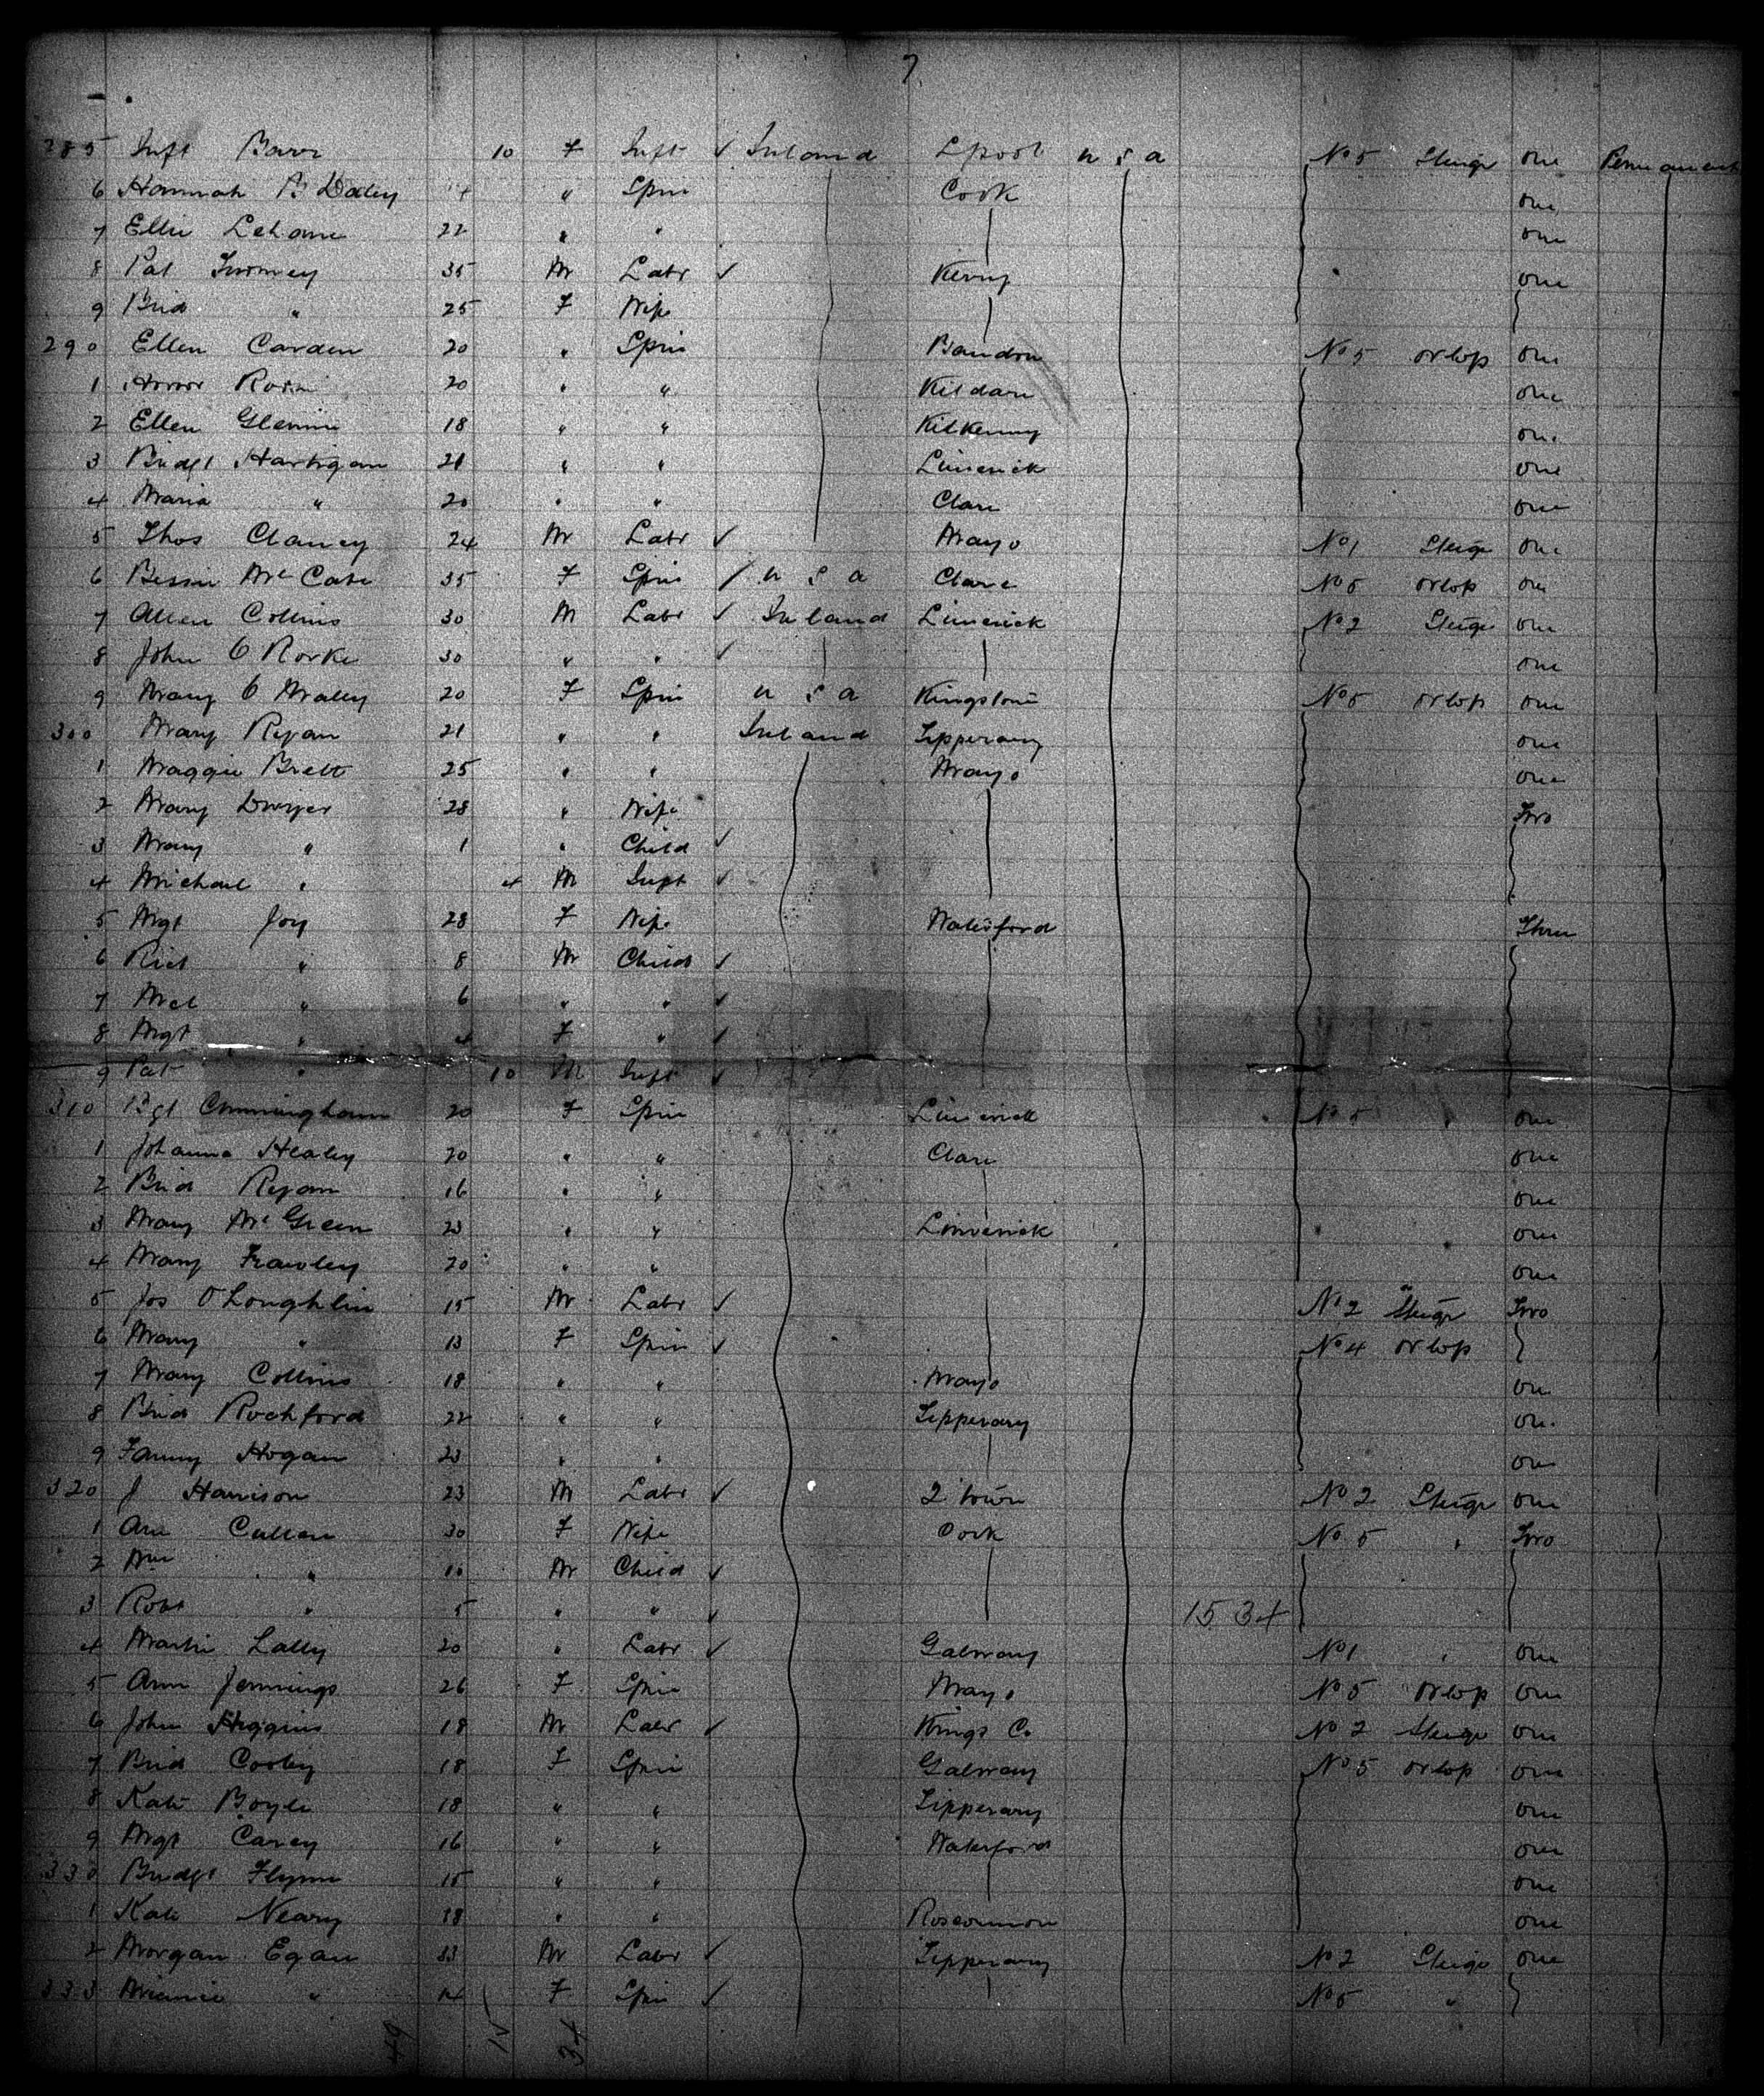 7.
285 Inft Barr 10 F Inft ✓ Ireland Lpool U S A No 5 Steige one Permanent
6 Hannah B Daley " Spin Cork one
7 Ellie Lehane 22 " " one
8 Pat Twomey 35 M Labr ✓ Kerry one
9 Brid " 25 F Wife
290 Ellen Carden 20 " Spin Bandon No 5 orlop one
1 Honor 20 " " Kildare one
2 Ellen 18 " " Kilkenny one
3 Bridgt Hartigan 21 " " Limerick one
4 Maria " 20 " " Clare one
5 Thos Clancy 24 M Labr ✓ Mayo No 1 Steige one
6 Bessie McCabe 35 F Spin ✓ U S A Clare No 5 orlop one
7 Allen Collins 30 M Labr ✓ Ireland Limerick No 2 Steige one
8 John O Rorke 30 " " ✓ one
9 Mary O Malley 20 F Spin U S A Kingstown No 5 orlop one
300 Mary Ryan 21 " " Ireland Tipperary one
1 Maggie Brett 25 " " Mayo one
2 Mary Dwyer 28 " Wife Two
3 Mary " 1 " Child ✓
4 Michael " 4 M Inft ✓
5 Mgt Joy 28 F Wife Waterford Three
6 Rich " 8 M Child ✓
7 Mcl " 6 " " ✓
8 Mgt " 4 F " ✓
9 Pat " 10 M Inft ✓
310 Bgt Cunningham 20 F Spin Limerick No 5 " one
1 Johanna Healey 20 " " Clare one
2 Brid Ryan 16 " " one
3 Mary McGreen 23 " " Limerick one
4 Mary Frawley 20 " " one
5 Jos O'Loughlin 15 M Labr ✓ No 2 Steige Two
6 Mary " 13 F Spin ✓ No 4 orlop
7 Mary Collins 18 " " Mayo one
8 Brid Rochford 22 " " Tipperary one
9 Fanny Hogan 23 " " one
320 J Harrison 23 M Labr ✓ Q town No 2 Steige one
1 Ann Cullen 30 F Wife Cork No 5 " Two
2 Wm " 10 M Child ✓
3 Robt " 5 " " ✓ 1534
4 Martin Lally 20 " Labr ✓ Galway No 1 " one
5 Ann Jennings 26 F Spin Mayo No 5 orlop one
6 John Higgins 18 M Labr ✓ Kings Co. No 2 Steige one
7 Brid Cooley 18 F Spin Galway No 5 orlop one
8 Kate Boyle 18 " " Tipperary one
9 Mgt Carey 16 " " Waterford one
330 Bridgt Flynn 15 " " one
1 Kate Neary 18 " " Roscommon one
2 Morgan Egan 33 M Labr ✓ Tipperary No 2 Steige one
333 Minnie " 14 F Spin ✓ No 5 "